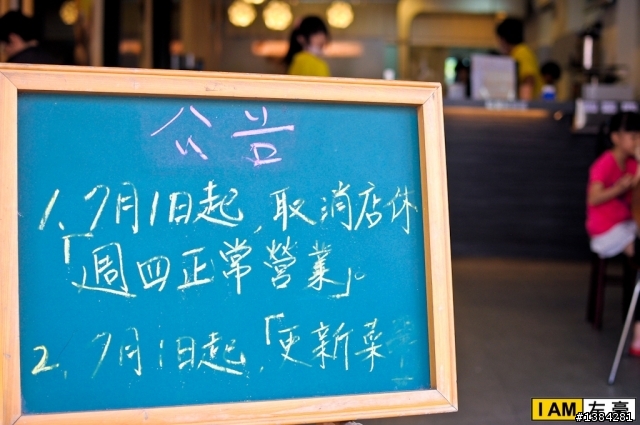 公告
1、7月1日起,取消店休
「週四正常營業」。
2、7月1日起,「更新菜
I AM 左亮
#1384281